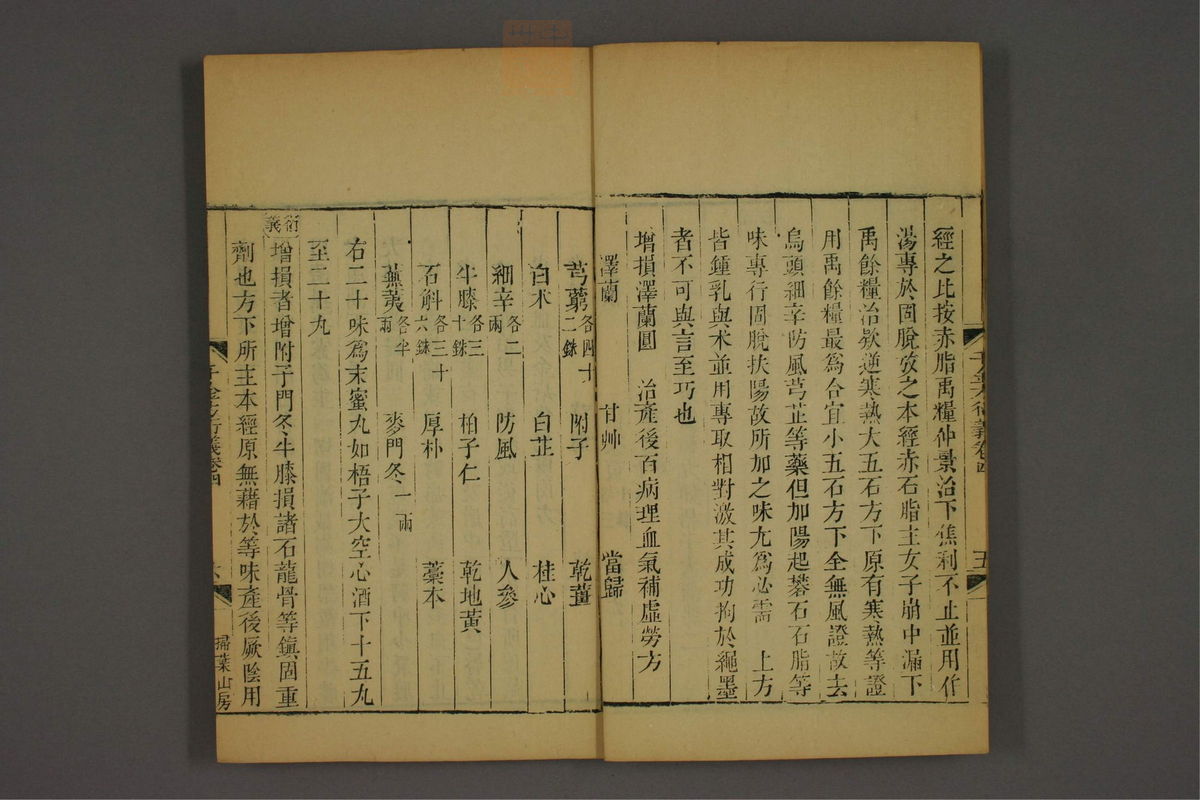 經之比按赤脂禹糧仲景治下焦利不止並用作
湯專於固脫攷之本經赤石脂主女子崩中漏下
禹餘糧治欬逆寒熱大五石方下原有寒熱等證
用禹餘糧最爲合宜小五石方下全無風證故去
烏頭細辛防風芎芷等藥但加陽起礬石石脂等
味專行固脫扶陽故所加之味尤爲必需 上方
皆鍾乳與朮並用專取相對激其成功拘於繩墨
者不可與言至巧也
增損澤蘭圓 治產後百病理血氣補虛勞方
澤蘭 甘艸 當歸
芎藭各四十二銖 附子 乾薑
白朮 白芷 桂心
細辛各二兩 防風 人參
牛膝各三十銖 柏子仁 乾地黃
石斛各三十六銖 厚朴 藁本
蕪荑各半兩 麥門冬一兩
右二十味爲末蜜丸如梧子大空心酒下十五丸
至二十丸
衍義
增損者增附子門冬牛膝損諸石龍骨等鎮固重
劑也方下所主本經原無藉於等味產後厥陰用
千金方衍義卷四
掃葉山房
千金方衍義卷四
五